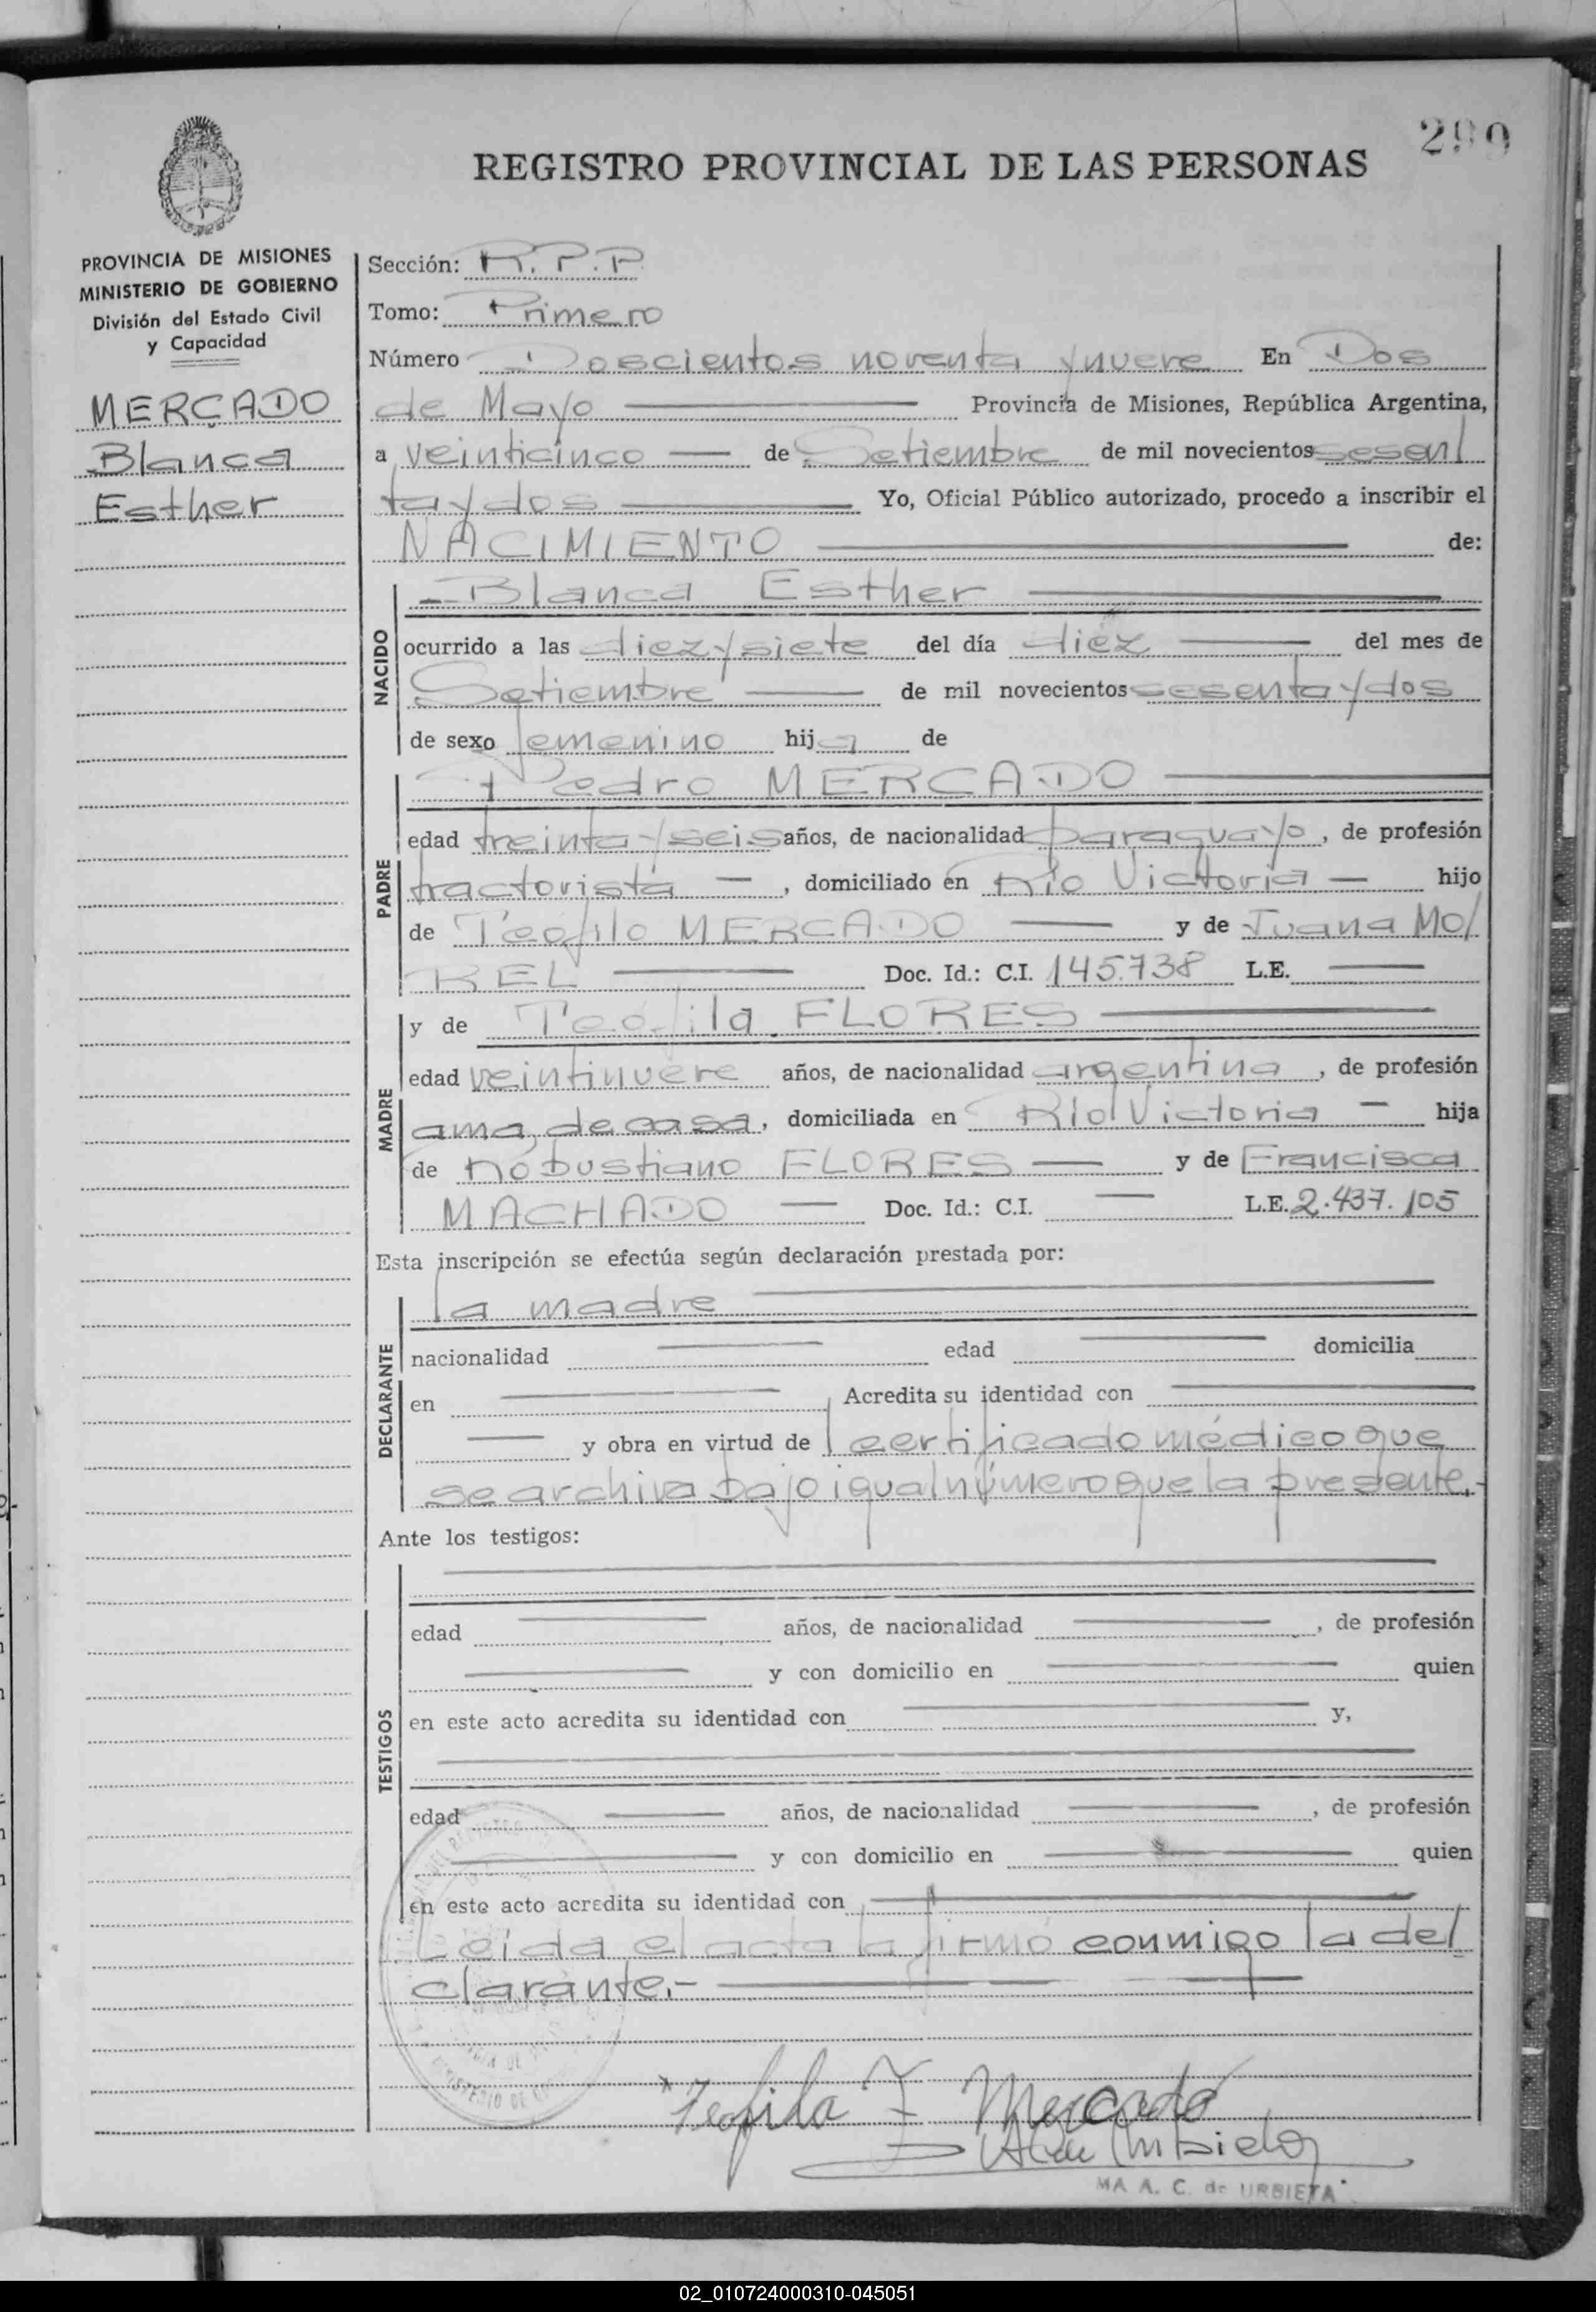 299
REGISTRO PROVINCIAL DE LAS PERSONAS
PROVINCIA DE MISIONES
MINISTERIO DE GOBIERNO
División del Estado Civil
y Capacidad
MERCADO
Blanca
Esther
Sección: R.P.P
Tomo: Primero
Número Doscientos noventa y nueve En Dos
de Mayo Provincia de Misiones, República Argentina,
a veinticinco de Setiembre de mil novecientos sesen/
ta y dos Yo, Oficial Público autorizado, procedo a inscribir el
NACIMIENTO de:
NACIDO
Blanca Esther
ocurrido a las diez y siete del día diez del mes de
Setiembre de mil novecientos sesenta y dos
de sexo femenino hija de
PADRE
Pedro MERCADO
edad treinta y seis años, de nacionalidad paraguayo, de profesión
tractorista, domiciliado en Río Victoria hijo
de Teófilo MERCADO y de Juana MO/
REL Doc. Id.: C.I. 145.738 L.E.
MADRE
y de Teófila FLORES
edad veintinueve años, de nacionalidad argentina, de profesión
ama de casa, domiciliada en Río Victoria hija
de Robustiano FLORES y de Francisca
MACHADO Doc. Id.: C.I. L.E. 2.437.105
Esta inscripción se efectúa según declaración prestada por:
DECLARANTE
la madre
nacionalidad edad domicilia
en Acredita su identidad con
y obra en virtud de certificado médico que
se archiva bajo igual número que la presente.-
Ante los testigos:
TESTIGOS
edad años, de nacionalidad , de profesión
y con domicilio en quien
en este acto acredita su identidad con y,
edad años, de nacionalidad , de profesión
y con domicilio en quien
en este acto acredita su identidad con
Leída el acta la firmó conmigo la de/
clarante.-
Teofila F Mercado
MA A. C. de URBIETA
02_010724000310-045051